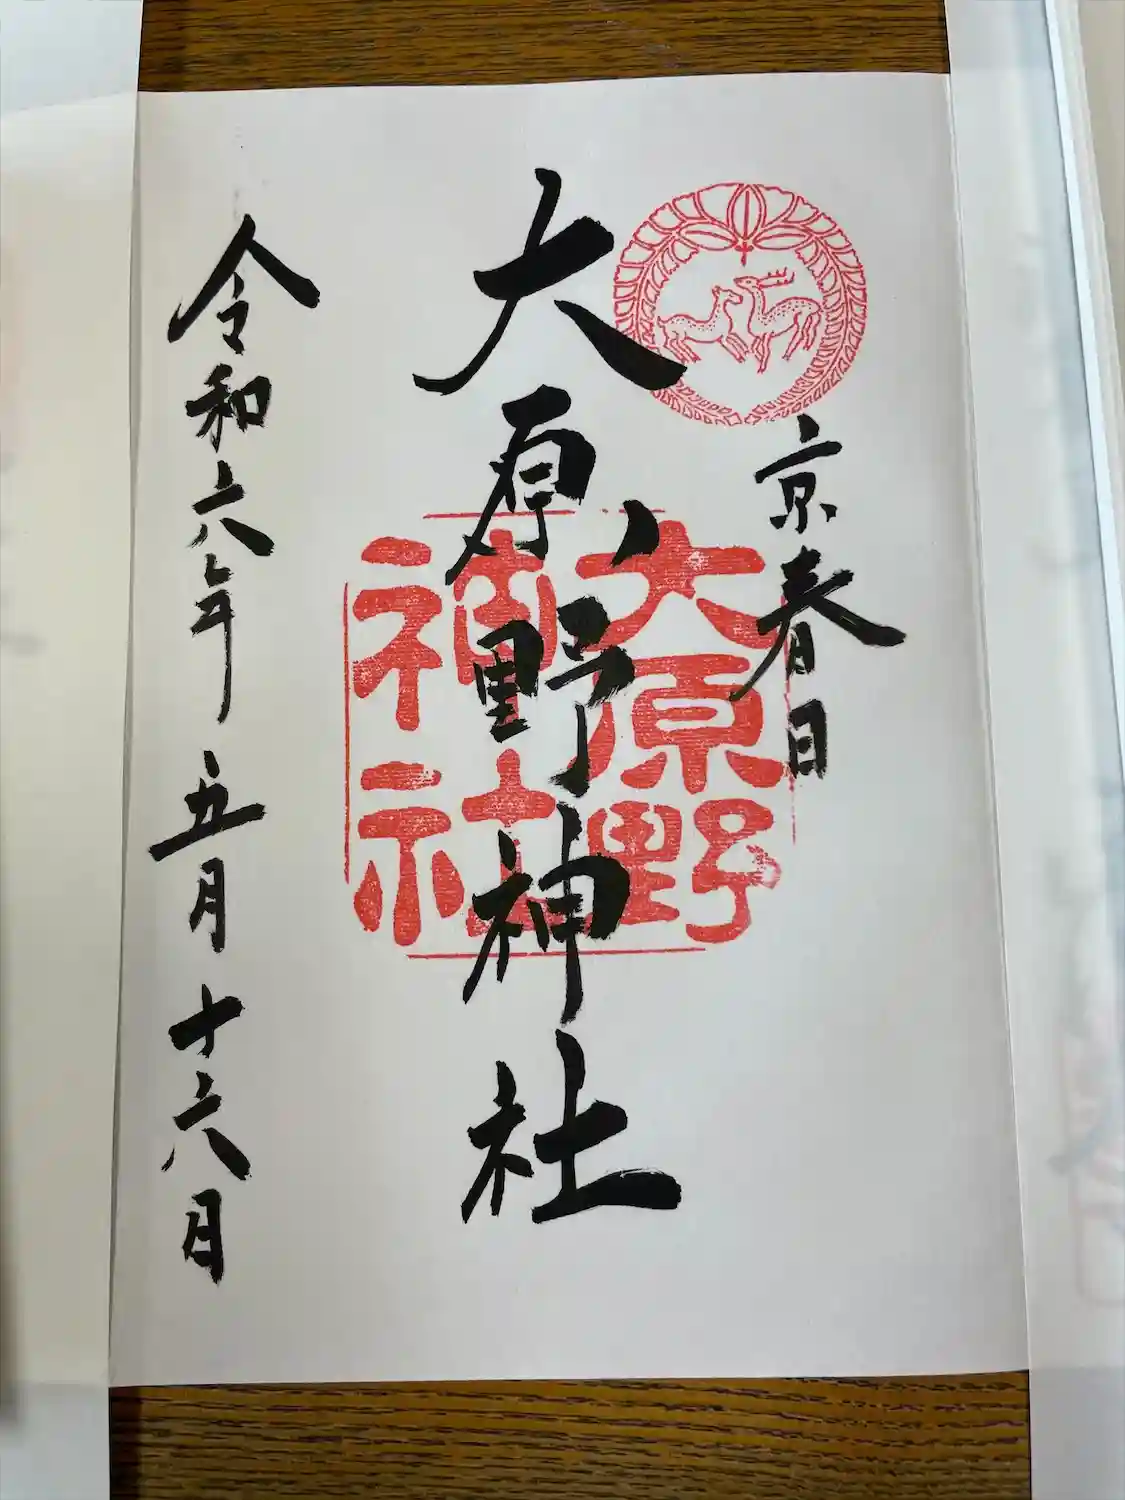 京春日
大原野神社
大原野
神社
令和六年五月十六日